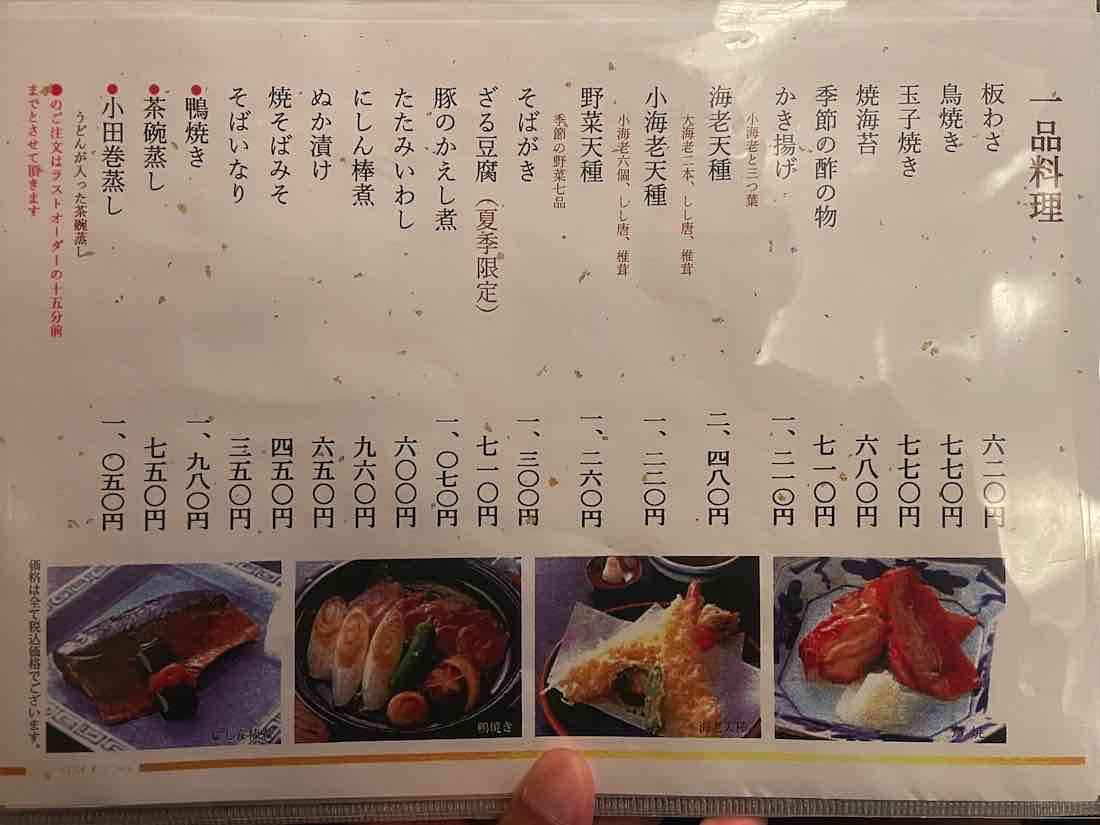 一品料理
板わさ 六二〇円
鳥焼き 七七〇円
玉子焼き 七七〇円
焼海苔 六八〇円
季節の酢の物 七一〇円
かき揚げ 一、二一〇円
小海老と三つ葉
海老天種 二、四八〇円
大海老二本、しし唐、椎茸
小海老天種 一、二二〇円
小海老六個、しし唐、椎茸
野菜天種 一、二六〇円
季節の野菜七品
そばがき 一、三〇〇円
ざる豆腐（夏季限定） 七一〇円
豚のかえし煮 一、〇七〇円
たたみいわし 六〇〇円
にしん棒煮 九六〇円
ぬか漬け 六五〇円
焼そばみそ 四五〇円
そばいなり 三五〇円
●鴨焼き 一、九八〇円
●茶碗蒸し 七五〇円
●小田巻蒸し 一、〇五〇円
うどんが入った茶碗蒸し
●のご注文はラストオーダーの十五分前
までとさせて頂きます
海老天種
鴨焼き
にしん棒煮
価格は全て税込価格でございます。